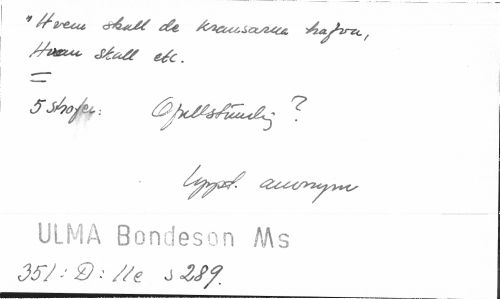 "Hvem skall de kransarna hafva,
Hvem skall etc.
=
5 strofer. Ofullständig?
Uppt. anonym
ULMA Bondeson Ms
351:D:11e s 289.